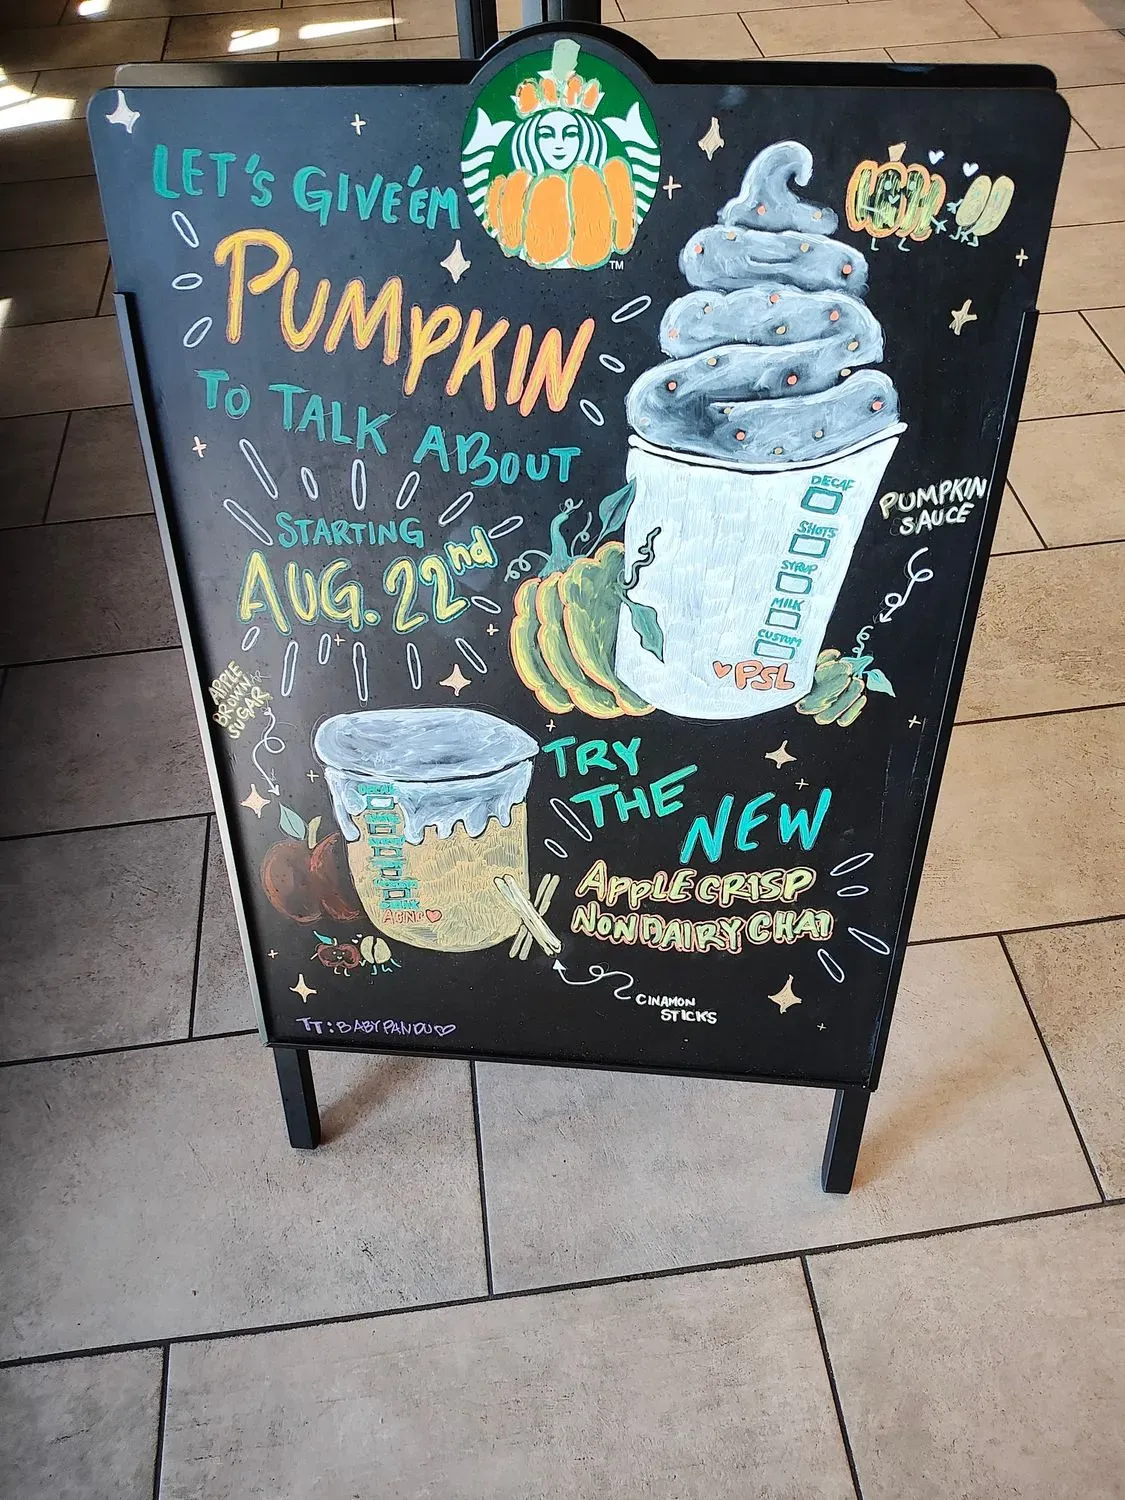 TM
LET'S GIVE 'EM
PUMPKIN
TO TALK ABOUT
STARTING
AUG. 22nd
DECAF
SHOTS
SYRUP
MILK
CUSTOM
PSL
PUMPKIN
SAUCE
APPLE
BROWN
SUGAR
TRY
THE
NEW
APPLE CRISP
NONDAIRY CHAI
DECAF
CINAMON
STICKS
TT: BABYPANDU